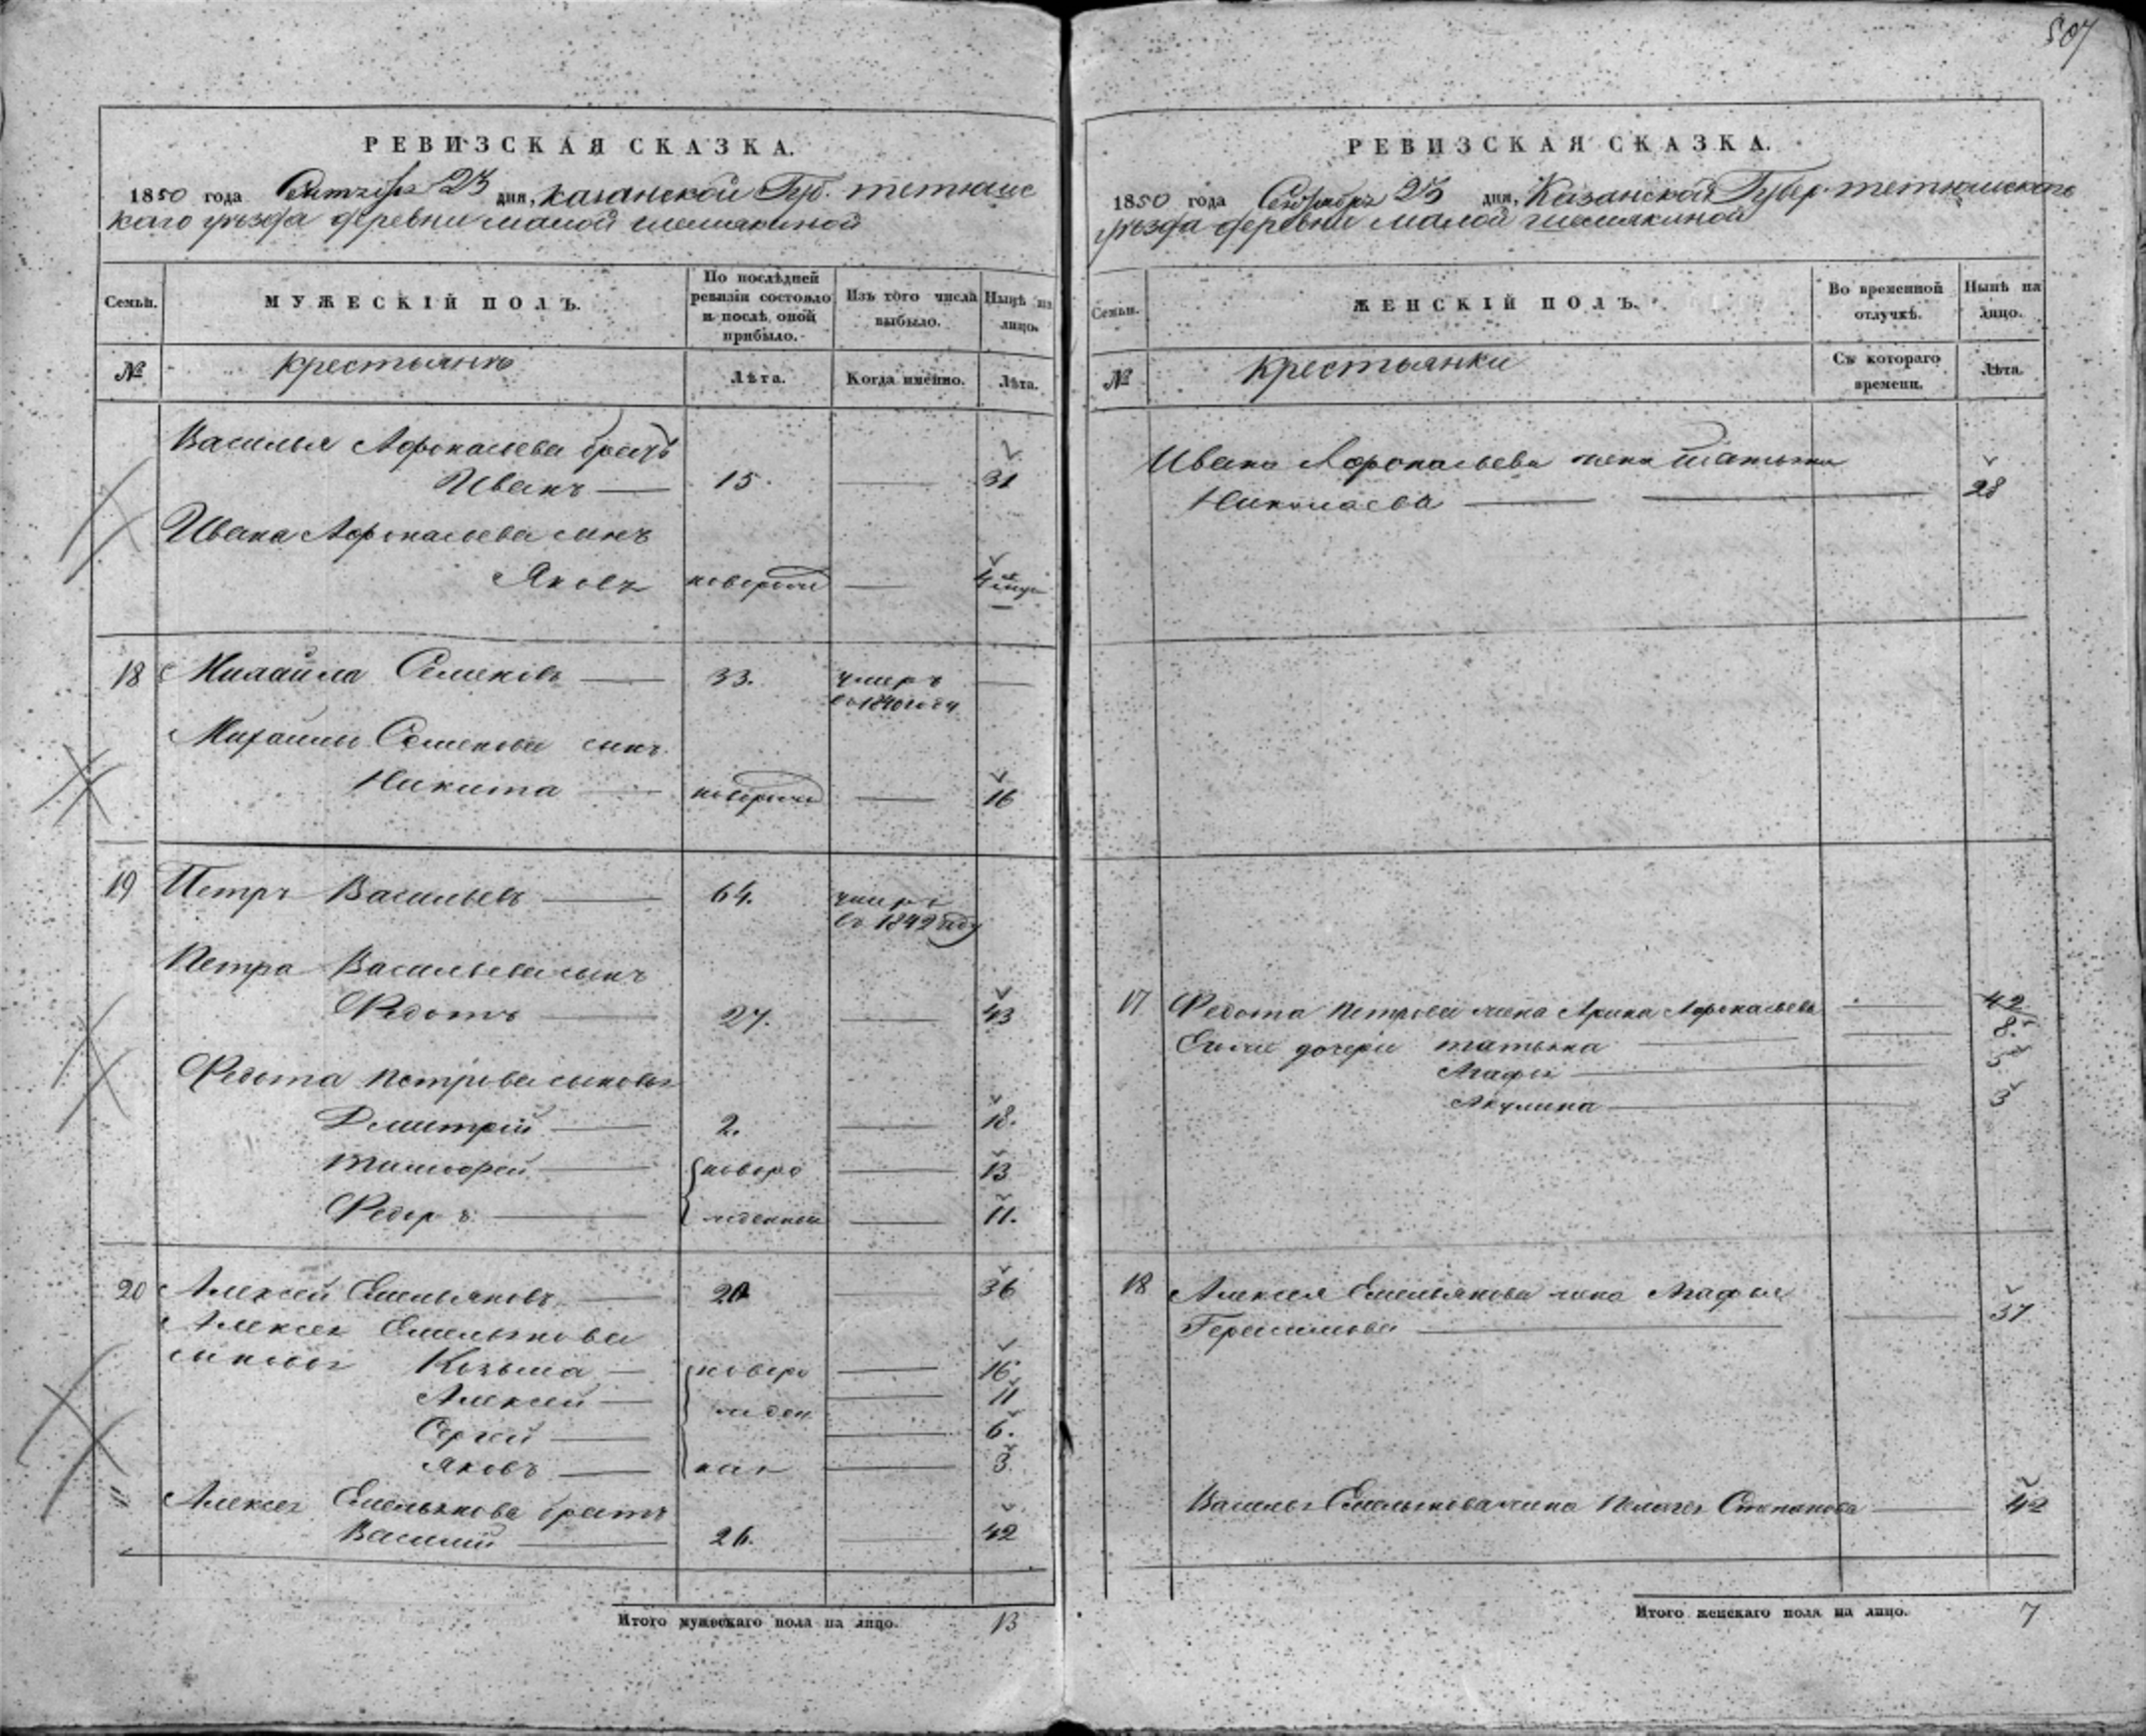 507
РЕВИЗСКАЯ СКАЗКА.
1850 года Сентября 23 дня, казанской Губ. тетюшс
каго уѣзда деревни малой шемякиной
Семьи.
МУЖЕСКІЙ ПОЛЪ.
По послѣдней ревизіи состояло и послѣ оной прибыло.
Изъ того числа выбыло.
Нынѣ на лицо.
№
крестьянъ
Лѣта.
Когда именно.
Лѣта.
Василья Афонасьева братъ
Иванъ — 15. — 31
Ивана Афонасьева сынъ
Яковъ —
18 Михаила Семеновъ — 33. умеръ —
въ 1840 году
Михайлы Семенова сынъ
Никита — — 16
19 Петръ Васильевъ — 64. умеръ
въ 1842 году
Петра Васильева сынъ
Федотъ — 27. — 43
Федота Петрова сыновья
Дмитрей — 2. — 18.
Тимофей — новоро — 13
Федоръ — жденные — 11.
20 Алексей Емельяновъ — 20 36
Алексея Емельянова
сыновья Козьма — новоро — 16
Алексей — жден — 11
Сергей — — 6.
Яковъ — — 3.
Алексея Емельянова братъ
Василий — 26. — 42
Итого мужескаго пола на лицо. 13
РЕВИЗСКАЯ СКАЗКА.
1850 года Сентября 23 дня, Казанской Губер. тетюшскаго
уѣзда деревни малой шемякиной
Семьи.
ЖЕНСКІЙ ПОЛЪ.
Во временной отлучкѣ.
Нынѣ на лицо.
№
крестьянки
Съ котораго времени.
Лѣта.
Ивана Афонасьева жена Татьяна
Николаева — — 28
17 Федота Петрова жена Арина Афонасьева — 42
дочери татьяна — — 8.
Агафья — 5
Акулина — 3
18 Алексея Емельянова жена Агафья
Герасимова — — 37
Василья Емельянова жена Пелагея Степанова — 42
Итого женскаго пола на лицо. 7